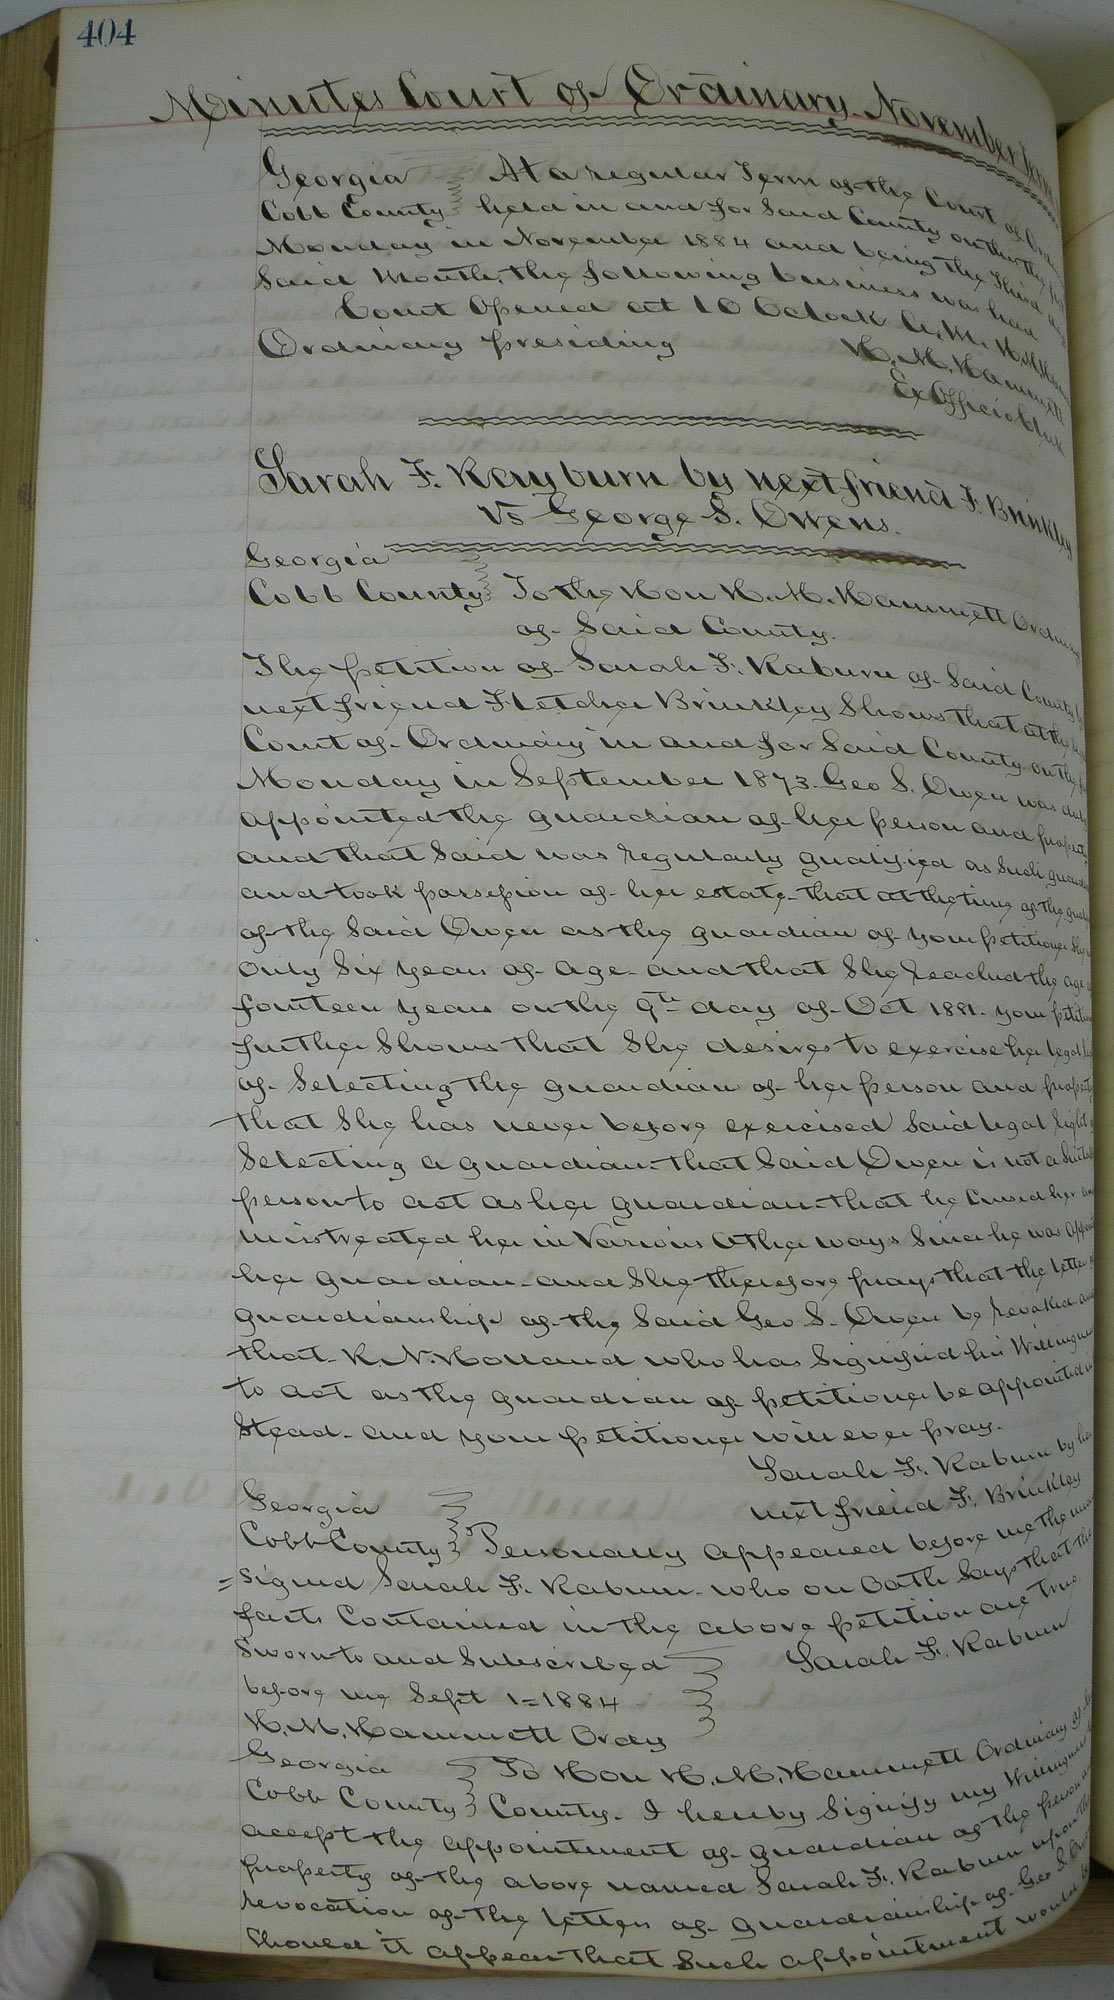 404
Minutes Court of Ordinary November Term
Georgia At a regular Term of the Court of
Cobb County held in and for Said County on the first
Monday in November 1884 and being the third day
Said Month, the following business was had
Court Opened at 10 Oclock A.M. H.M.
Ordinary presiding H. M. Hammett
Ex Officio Clerk
Sarah F. Rayburn by next friend F. Brinkley
Vs George S. Owens.
Georgia
Cobb County To the Hon H. M. Hammett Ordinary
of Said County.
The petition of Sarah F. Raburn of Said County by
next friend Fletcher Brinkley Shows that at the
Court of Ordinary in and for Said County on the
Monday in September 1873. Geo S. Owen was duly
appointed the guardian of her person and property
and that Said was regularly qualified as Such
and took possession of her estate that at the time of the
of the Said Owen as the guardian of your petitioner She
only Six years of age and that She reached the age
fourteen years on the 9th day of Oct 1881. your
further Shows that She desires to exercise her legal
of Selecting the guardian of her person and property
that She has never before exercised Said legal right
Selecting a guardian that Said Owen is not a
person to act as her guardian that he Cursed her and
mistreated her in Various Other ways Since he was
her guardian and She therefore prays that the letters
guardianship of the Said Geo S. Owen be revoked and
that R. N. Holland who has Signified his Willingness
to act as the guardian of petitioner be appointed in
Stead and your petitioner will ever pray.
Sarah F. Raburn by her
next friend F. Brinkley
Georgia
Cobb County Personally appeared before me the
= signed Sarah F. Raburn who on Oath Says that the
facts Contained in the above petition are true
Sworn to and Subscribed Sarah F. Raburn
before me Sept 1=1884
H. M. Hammett Ordy
Georgia To Hon H. M. Hammett Ordinary of
Cobb County County. I hereby Signify my Willingness
accept the appointment of guardian of the person
property of the above named Sarah F. Raburn upon the
revocation of the letters of guardianship of Geo S.
Should it appear that Such appointment would